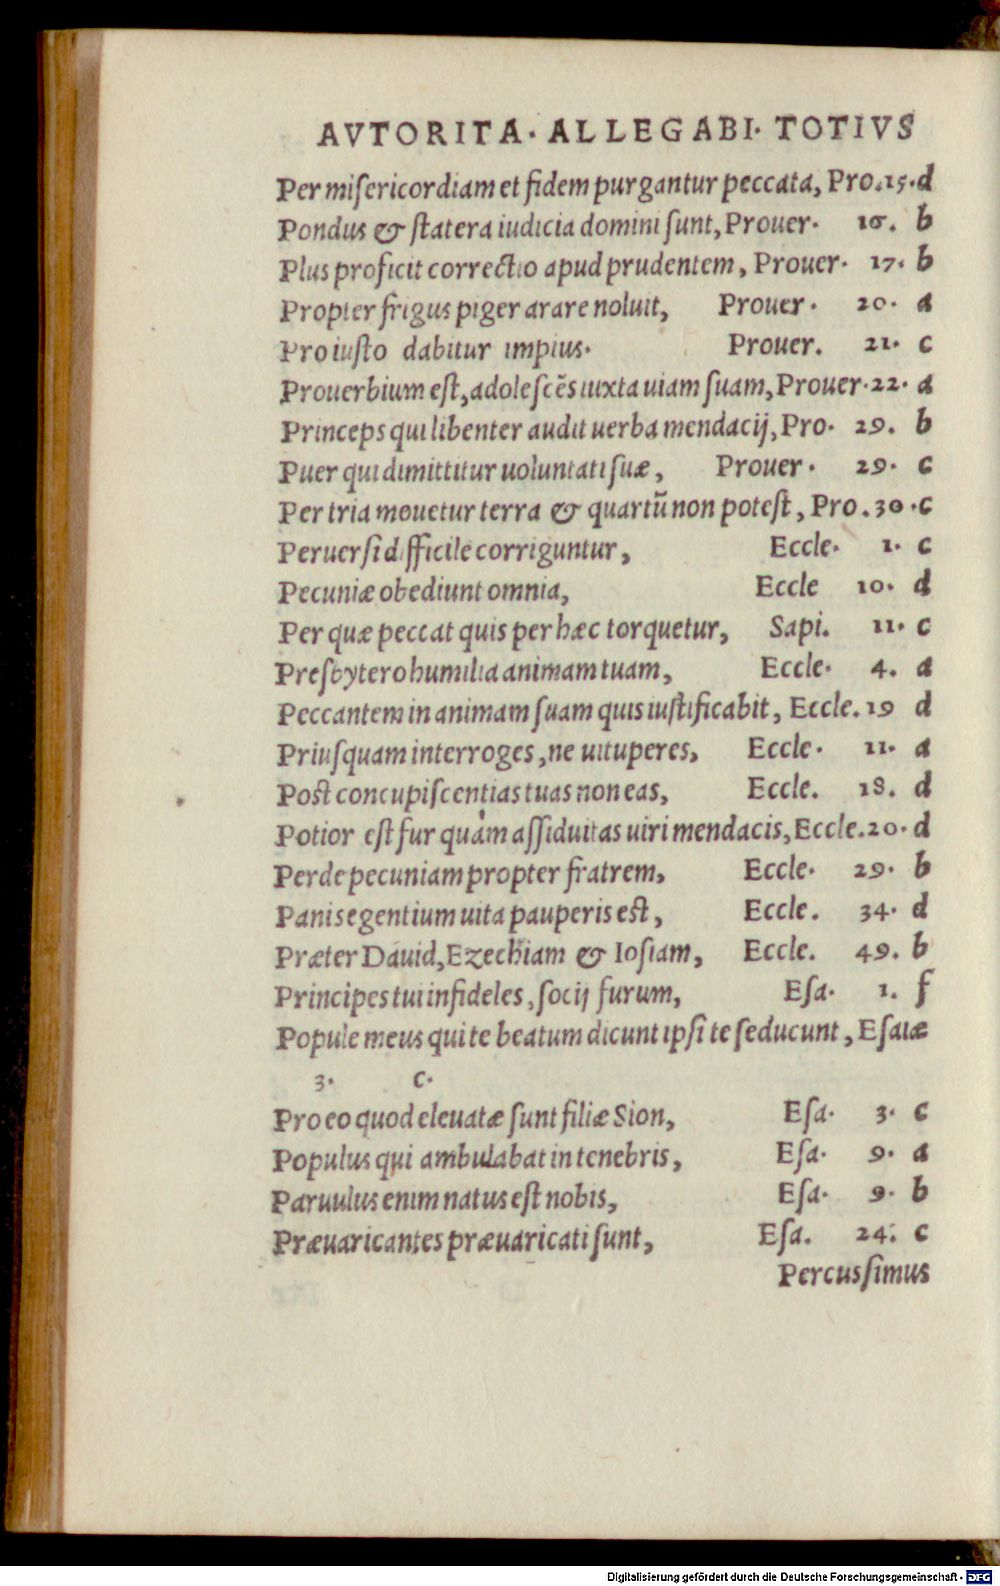 AVTORITA. ALLEGABI. TOTIVS
Per miſericordiam et fidem purgantur peccata, Pro. 15. d
Pondus & ſtatera iudicia domini ſunt, Prouer. 16. b
Plus proficit correctio apud prudentem, Prouer. 17. b
Propter frigus piger arare noluit, Prouer. 20. a
Pro iuſto dabitur impius. Prouer. 21. c
Prouerbium eſt, adoleſcẽs iuxta uiam ſuam, Prouer. 22. a
Princeps qui libenter audit uerba mendacij, Pro. 29. b
Puer qui dimittitur uoluntati ſuæ, Prouer. 29. c
Per tria mouetur terra & quartũ non poteſt, Pro. 30. c
Peruerſi difficile corriguntur, Eccle. 1. c
Pecuniæ obediunt omnia, Eccle 10. d
Per quæ peccat quis per hæc torquetur, Sapi. 11. c
Preſbytero humilia animam tuam, Eccle. 4. a
Peccantem in animam ſuam quis iuſtificabit, Eccle. 19 d
Priuſquam interroges, ne uituperes, Eccle. 11. a
Poſt concupiſcentias tuas non eas, Eccle. 18. d
Potior eſt fur quàm aſſiduitas uiri mendacis, Eccle. 20. d
Perde pecuniam propter fratrem, Eccle. 29. b
Panis egentium uita pauperis eſt, Eccle. 34. d
Præter Dauid, Ezechiam & Ioſiam, Eccle. 49. b
Principes tui infideles, ſocij furum, Eſa. 1. f
Popule meus qui te beatum dicunt ipſi te ſeducunt, Eſaiæ
3. c.
Pro eo quod eleuatæ ſunt filiæ Sion, Eſa. 3. c
Populus qui ambulabat in tenebris, Eſa. 9. a
Paruulus enim natus eſt nobis, Eſa. 9. b
Præuaricantes præuaricati ſunt, Eſa. 24. c
Percuſſimus
Digitalisierung gefördert durch die Deutsche Forschungsgemeinschaft - DFG